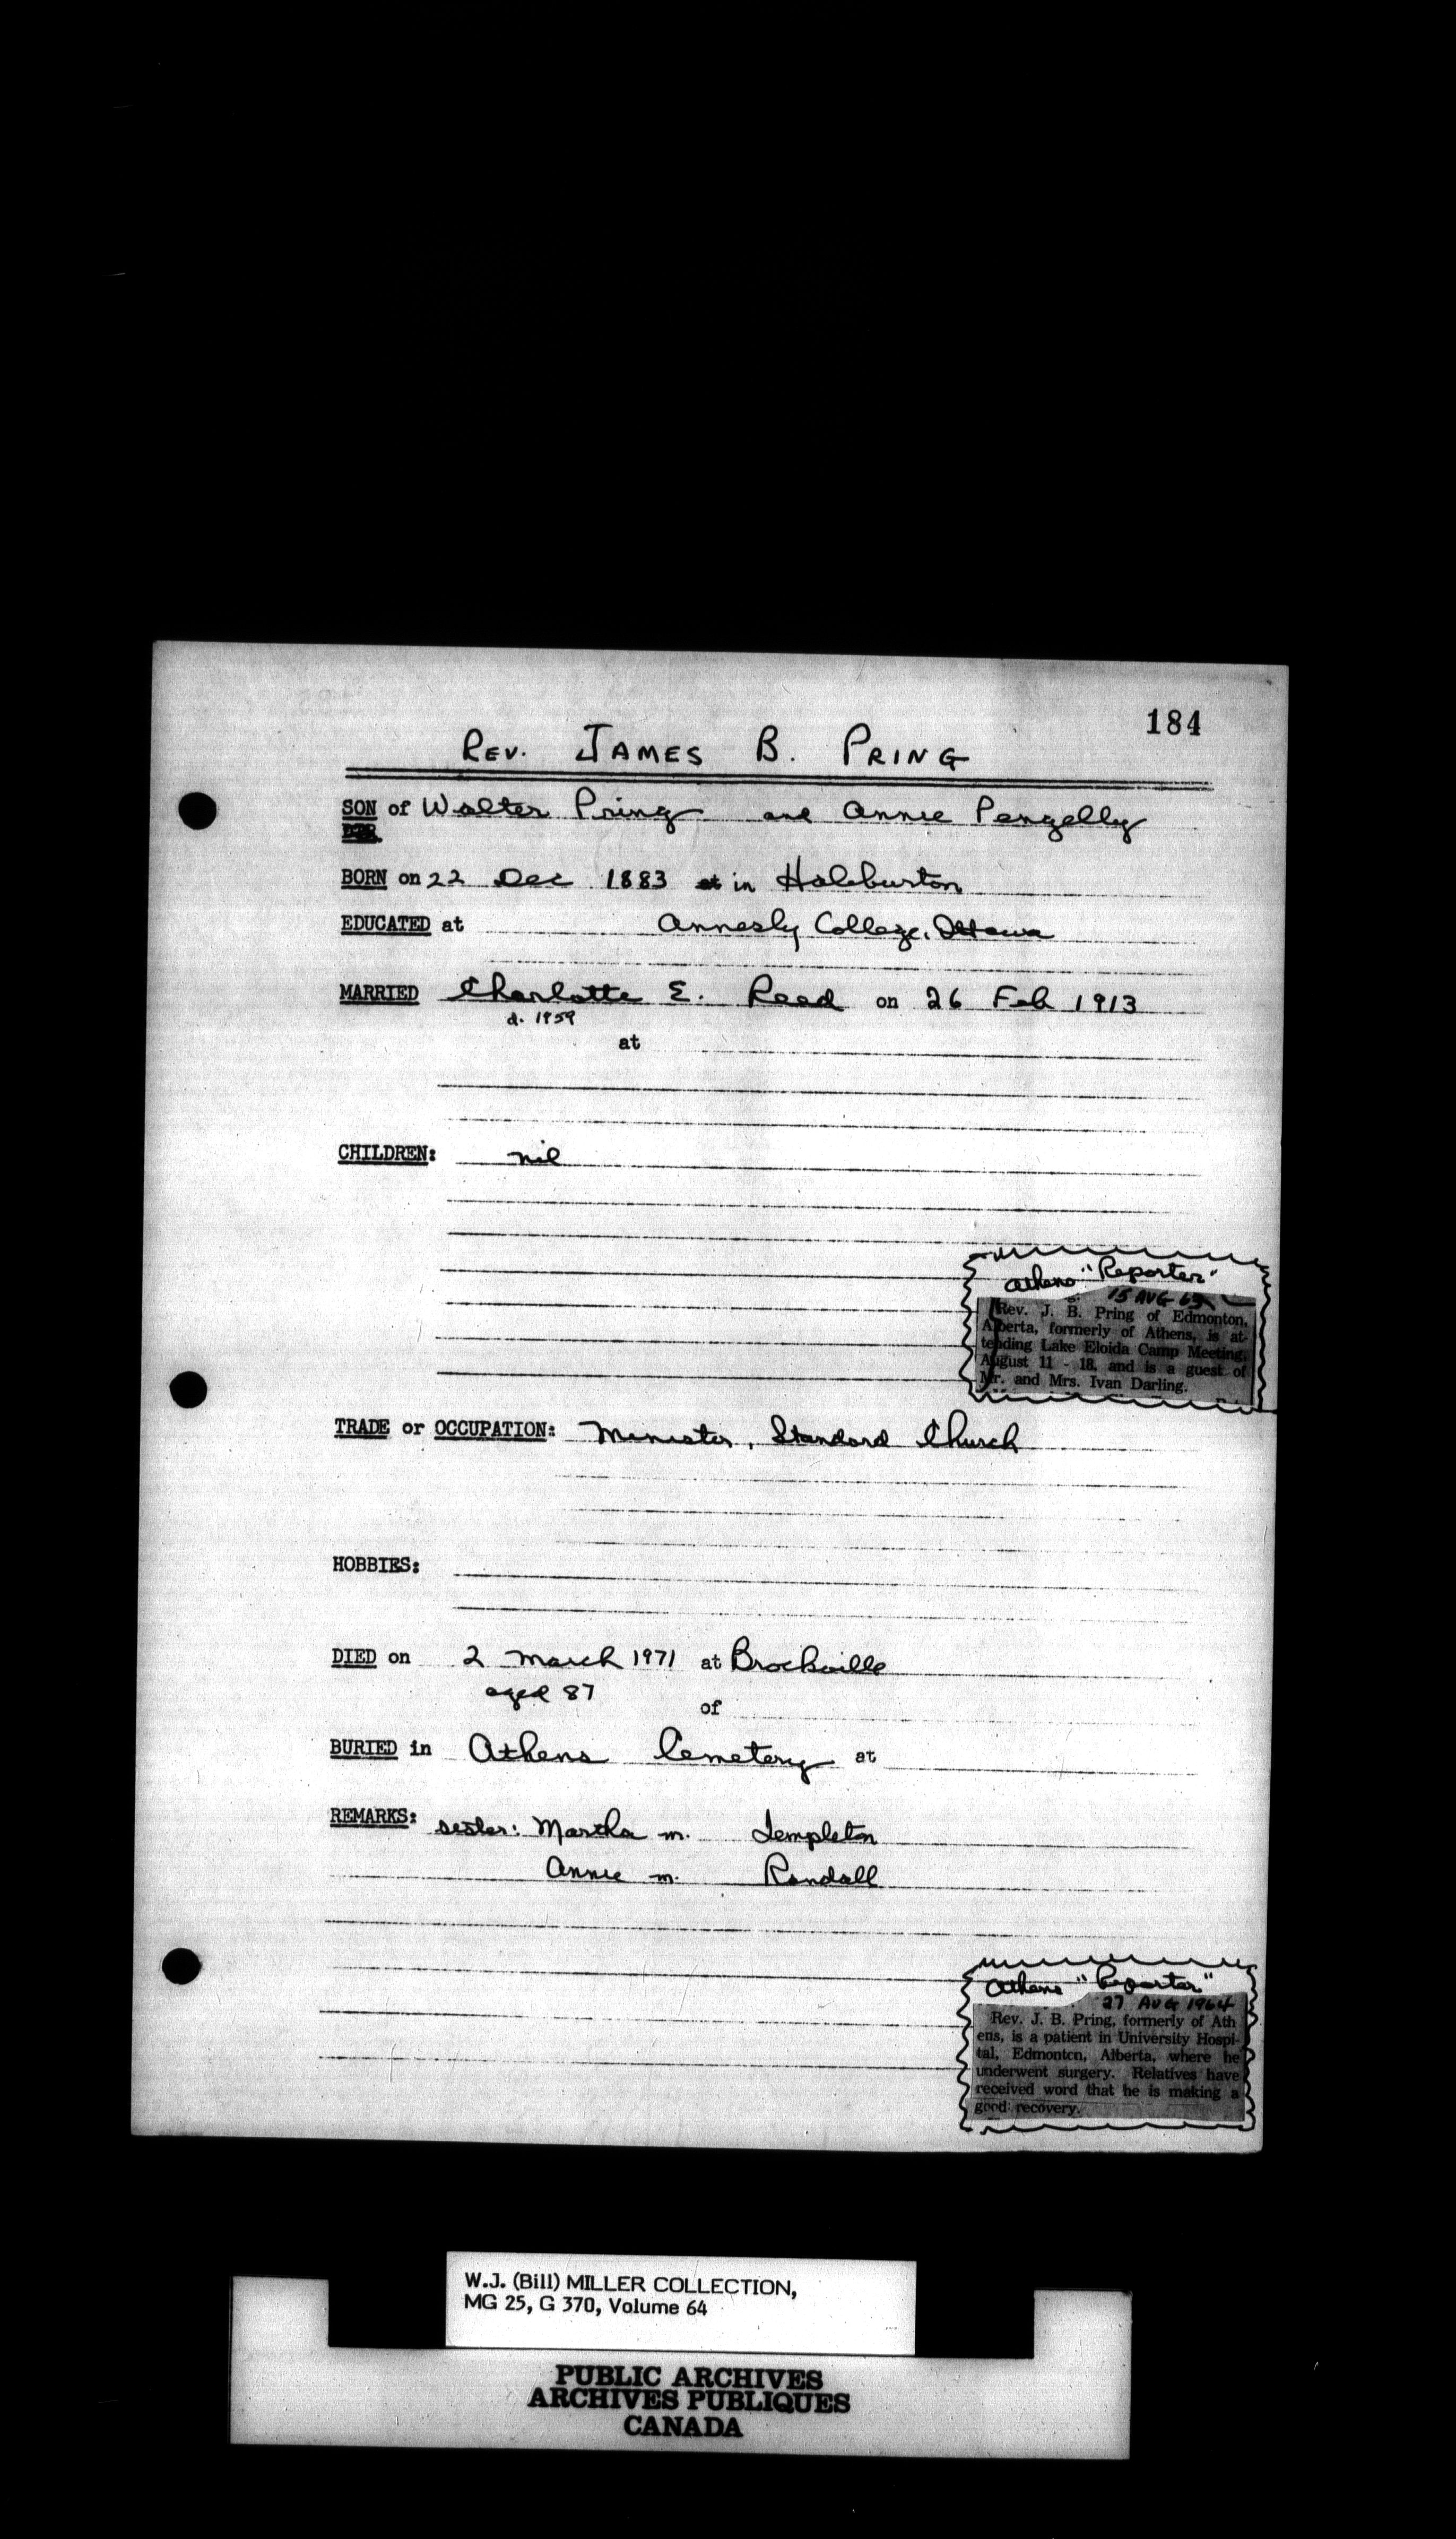 184
REV. JAMES B. PRING
SON of Walter Pring and Annie Pengelly
DTR.
BORN on 22 Dec 1883 at in Haliburton
EDUCATED at Annesly College, Ottawa
MARRIED Charlotte E. Reed on 26 Feb 1913
d. 1959
at
CHILDREN: nil
Athens "Reporter"
15 AUG 63
Rev. J. B. Pring of Edmonton,
Alberta, formerly of Athens, is at-
tending Lake Eloida Camp Meeting,
August 11 - 18, and is a guest of
Mr. and Mrs. Ivan Darling.
TRADE or OCCUPATION: Minister, Standard Church
HOBBIES:
DIED on 2 March 1971 at Brockville
aged 87
of
BURIED in Athens Cemetery at
REMARKS: sister: Martha m. Templeton
Annie m. Randall
Athens "Reporter"
27 AUG 1964
Rev. J. B. Pring, formerly of Ath
ens, is a patient in University Hospi-
tal, Edmonton, Alberta, where he
underwent surgery. Relatives have
received word that he is making a
good recovery.
W.J. (Bill) MILLER COLLECTION,
MG 25, G 370, Volume 64
PUBLIC ARCHIVES
ARCHIVES PUBLIQUES
CANADA